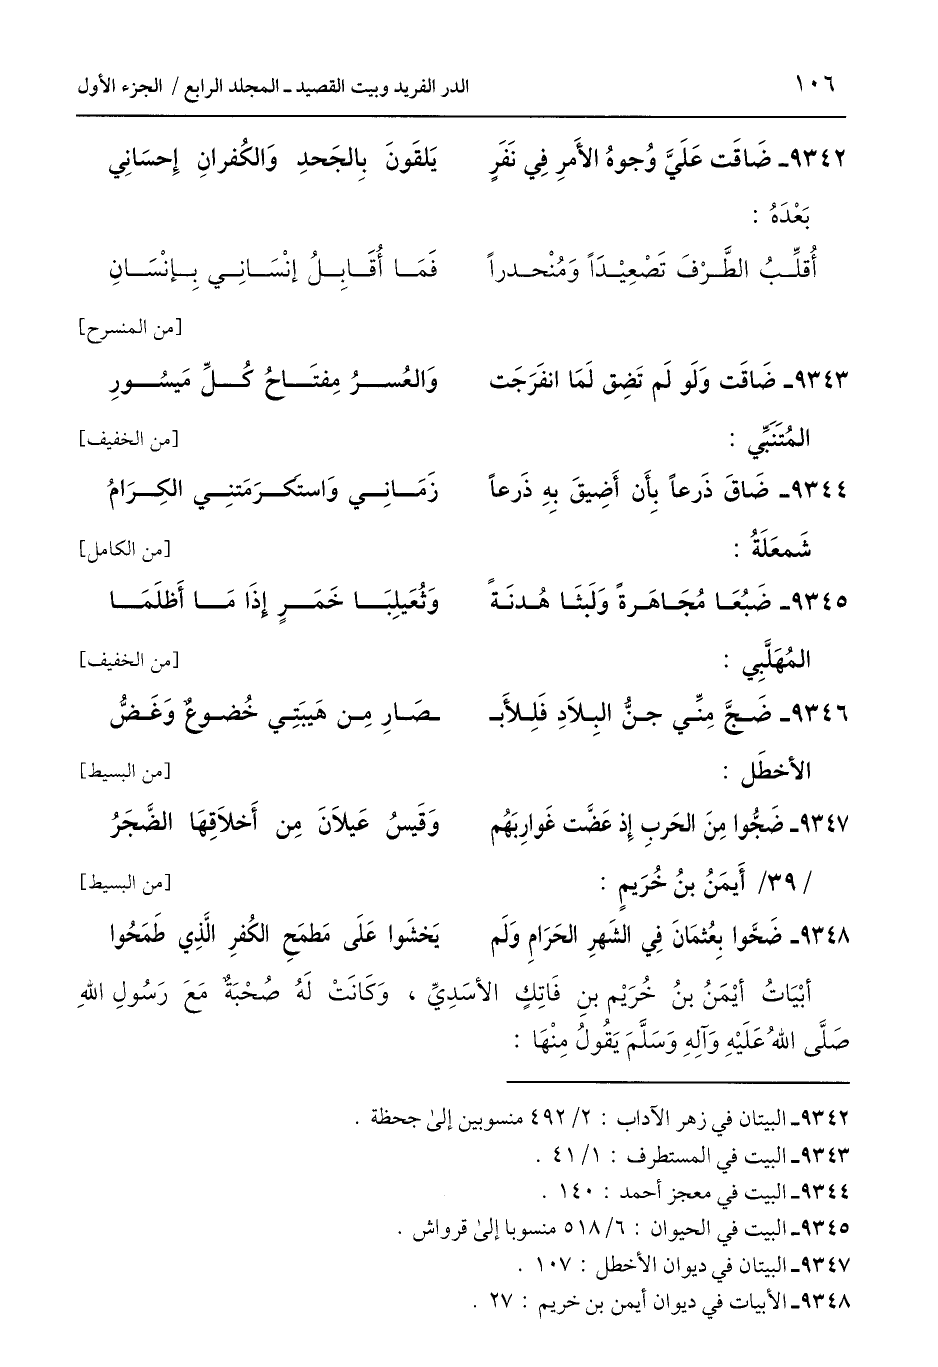 ١٠٦ الدر الفريد وبيت القصيد ـ المجلد الرابع / الجزء الأول
٩٣٤٢ـ ضَاقَت عَلَيَّ وُجوهُ الأَمرِ فِي نَفَرٍ يَلقَونَ بِالجَحدِ وَالكُفرانِ إِحسَانِي
بَعْدَهُ :
أُقلِّبُ الطَّرْفَ تَصْعِيْدَاً وَمُنْحدراً فَمَا أُقَابِلُ إنْسَانِي بِإنْسَانِ
[من المنسرح]
٩٣٤٣ـ ضَاقَت وَلَو لَم تَضِق لَمَا انفَرَجَت وَالعُسرُ مِفتَاحُ كُلِّ مَيسُورِ
المُتَنَبِّي : [من الخفيف]
٩٣٤٤ـ ضَاقَ ذَرعاً بِأَن أَضِيقَ بِهِ ذَرعاً زَمَانِي وَاستَكرَمَتنِي الكِرَامُ
شَمعَلَةُ : [من الكامل]
٩٣٤٥ـ ضَبُعَا مُجَاهَرةً وَلَيثَا هُدنَةً وَثُعَيلِبَا خَمَرٍ إِذَا مَا أَظلَمَا
المُهَلَّبِي : [من الخفيف]
٩٣٤٦ـ ضَجَّ مِنِّي جنُّ البِلاَدِ فَلِلأَبـ ـصَارِ مِن هَيبَتِي خُضوعٌ وَغَضُّ
الأخطَل : [من البسيط]
٩٣٤٧ـ ضَجُّوا مِنَ الحَربِ إِذ عَضَّت غَوارِبَهُم وَقَيسُ عَيلاَنَ مِن أَخلاَقِهَا الضَّجَرُ
/ ٣٩/ أَيمَنُ بنُ خُرَيمٍ : [من البسيط]
٩٣٤٨ـ ضَحَّوا بِعُثمَانَ فِي الشَهرِ الحَرَامِ وَلَم يَخشَوا عَلَى مَطمَحِ الكُفرِ الَّذِي طَمَحُوا
أبْيَاتُ أيْمَنُ بنُ خُرَيْم بنِ فَاتِكٍ الأسَدِيِّ ، وَكَانَتْ لَهُ صُحْبَةٌ مَعَ رَسُولِ اللهِ
صَلَّى اللهُ عَلَيْهِ وَآلِهِ وَسَلَّمَ يَقُولُ مِنْهَا :
٩٣٤٢ـ البيتان في زهر الآداب : ٢/ ٤٩٢ منسوبين إلىٰ جحظة .
٩٣٤٣ـ البيت في المستطرف : ١/ ٤١ .
٩٣٤٤ـ البيت في معجز أحمد : ١٤٠ .
٩٣٤٥ـ البيت في الحيوان : ٦/ ٥١٨ منسوبا إلىٰ قرواش .
٩٣٤٧ـ البيتان في ديوان الأخطل : ١٠٧ .
٩٣٤٨ـ الأبيات في ديوان أيمن بن خريم : ٢٧ .